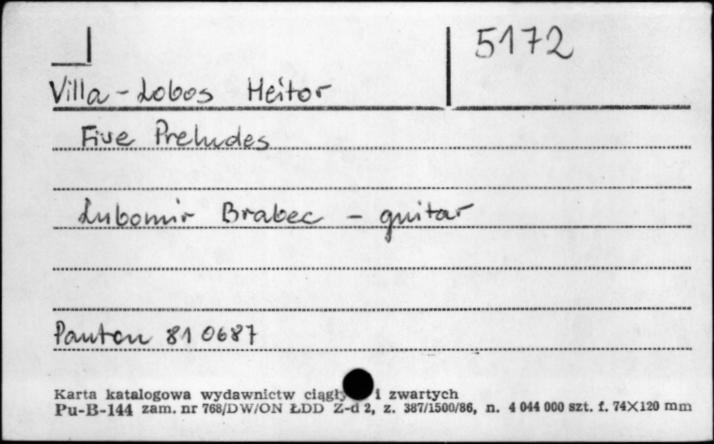 5172
Villa-Lobos Heitor
Five Preludes
Lubomir Brabec - guitar
Panton 81 0687
Karta katalogowa wydawnictw ciągły i zwartych
Pu-B-144 zam. nr 768/DW/ON ŁDD Z-d 2, z. 387/1500/86, n. 4 044 000 szt. f. 74X120 mm